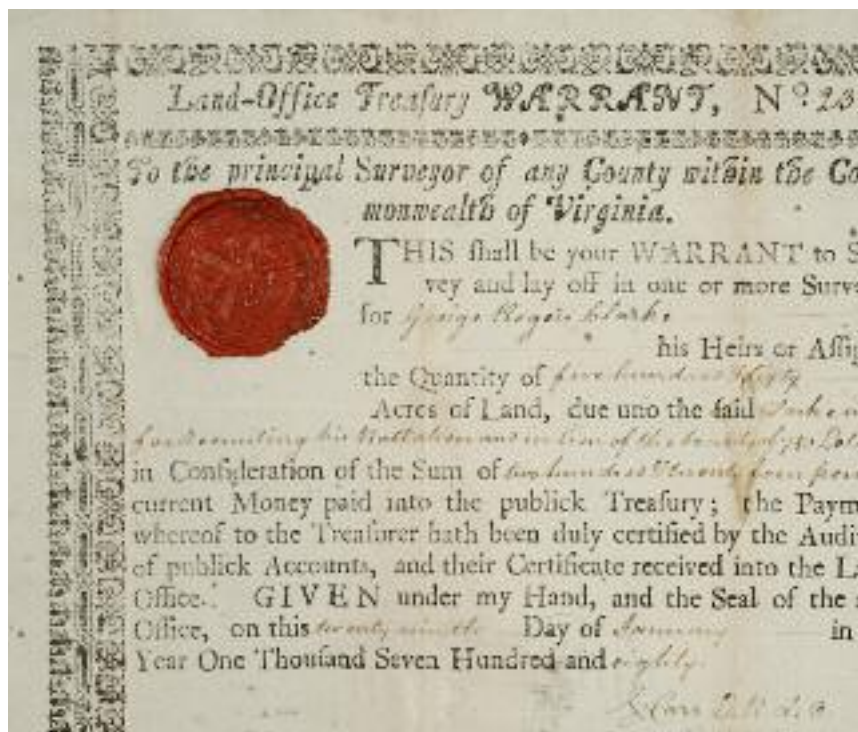 Land-Office Treasury WARRANT, No. 23
To the principal Surveyor of any County within the Co
monwealth of Virginia.
THIS ſhall be your WARRANT to S
vey and lay off in one or more Surve
for George Rogers Clark
his Heirs or Aſſig
the Quantity of five hundred & ſixty
Acres of Land, due uno the ſaid Clark
for Recruiting his Battalion and in lieu of the bounty of 750 Dol
in Conſideration of the Sum of two hundred & twenty four poun
current Money paid into the publick Treaſury; the Paym
whereof to the Treaſurer hath been duly certified by the Audi
of publick Accounts, and their Certificate received into the La
Office. GIVEN under my Hand, and the Seal of the
Office, on this twenty ninth Day of January in
Year One Thouſand Seven Hundred and eighty.